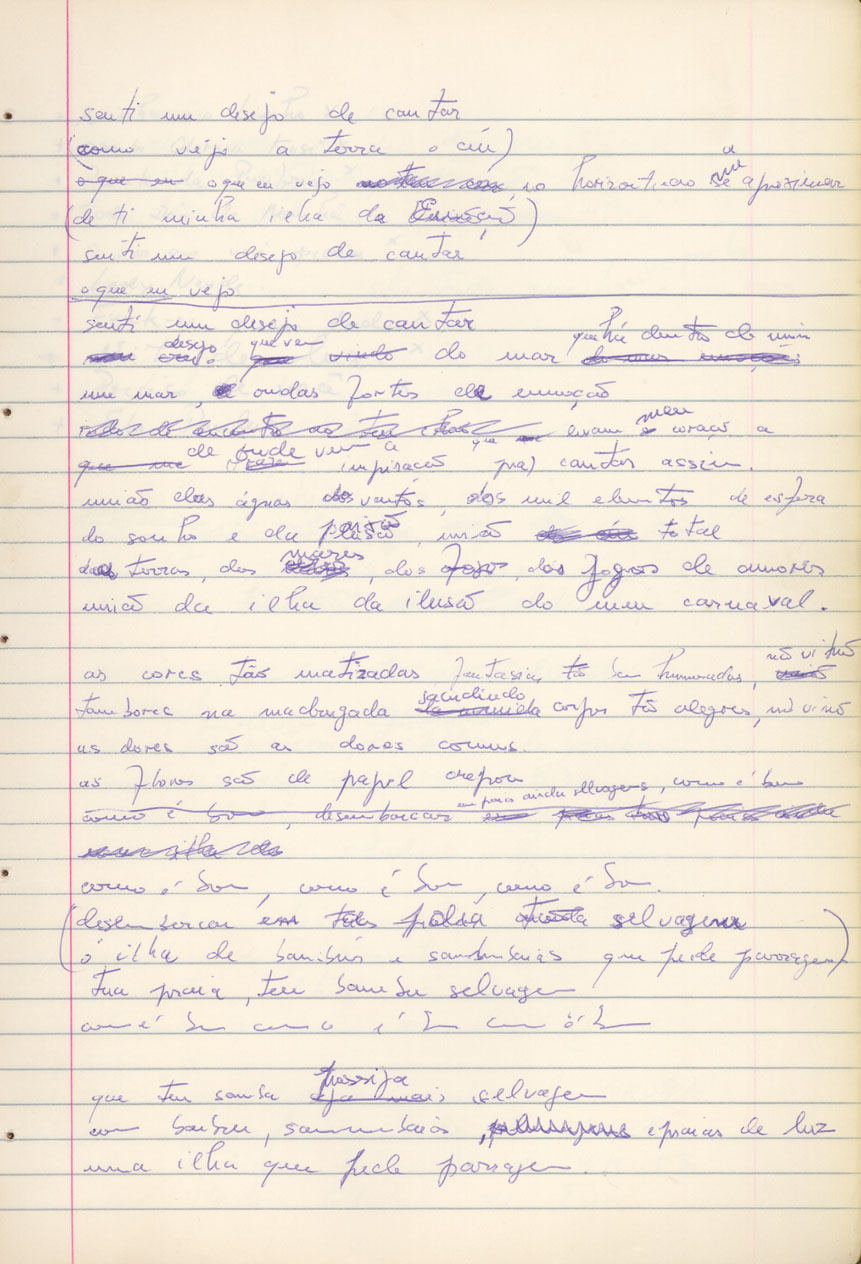 senti um desejo de cantar
(como vejo a terra o céu)
o que eu o que eu vejo no horizonte ao se me aproximar
(de ti minha ilha da Emoção)
senti um desejo de cantar
o que eu vejo
senti um desejo de cantar
desejo que vem do mar que há dentro de mim
um mar, ondas fortes de emoção
que levam meu coração a
que me de onde vem a inspiração pra) cantar assim.
união das águas dos ventos, dos mil de esfera
do sonho e da paixão, união total
das terras, dos mares, dos fogos, dos jogos de amores
união da ilha da ilusão do meu carnaval.
as cores tão matizadas fantasias tão bem humoradas, não virão
tambores na madrugada sacudindo corpos tão alegres, não virão
as dores são as dores comuns.
as flores são de papel crepon
como é bom, desembarcar em praias ainda selvagens, como é bom
como é bom, como é bom, como é bom.
(desembarcar em selvagem
ó ilha de bambus e sambaibas que pede passagem)
tua praia, tem bambu selvagem
como é bom como é bom como é bom
que tem samba selvagem
com bambu, e praias de luz
uma ilha que pede passagem.